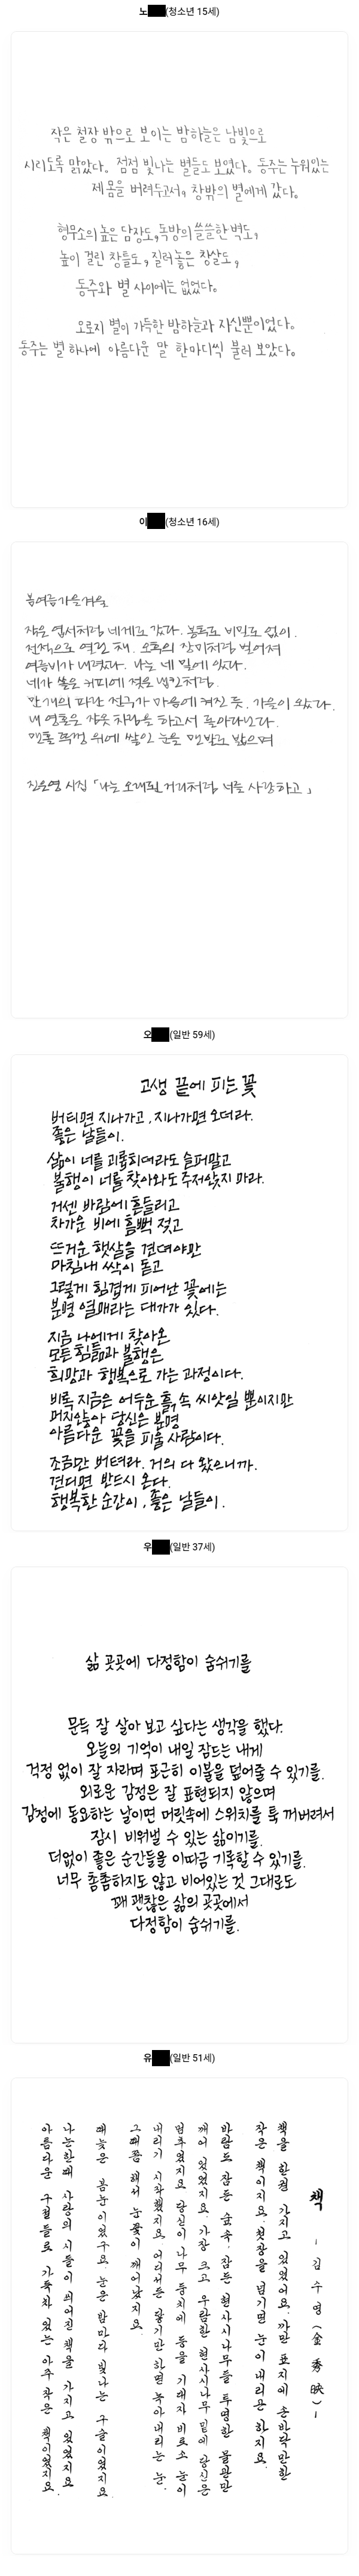 노 (청소년 15세)
작은 철장 밖으로 보이는 밤하늘은 남빛으로
시리도록 맑았다. 점점 빛나는 별들도 보였다. 동주는 누워있는
제 몸을 버려두고서, 창밖의 별에게 갔다.
형무소의 높은 담장도, 독방의 쓸쓸한 벽도,
높이 걸린 창틀도, 질러놓은 창살도,
동주와 별 사이에는 없었다.
오로지 별이 가득한 밤하늘과 자신뿐이었다.
동주는 별 하나에 아름다운 말 한마디씩 불러 보았다.
이 (청소년 16세)
봄여름가을겨울
작은 엽서처럼 네게로 갔다. 봉투도 비밀도 없이.
전적으로 열린 채. 오후의 장미처럼 벌어져
여름비가 내렸다. 나는 네 밑에 있다.
네가 쏟은 커피에 젖은 냅킨처럼.
만 개의 파란 전구가 마음에 켜진 듯. 가을이 왔다.
내 영혼은 잠옷 차림을 하고서 돌아다닌다.
맨홀 뚜껑 위에 쌓인 눈을 맨발로 밟으며
진은영 시집 「나는 오래된 거리처럼 너를 사랑하고」
오 (일반 59세)
고생 끝에 피는 꽃
버티면 지나가고, 지나가면 오더라.
좋은 날들이.
삶이 너를 괴롭히더라도 슬퍼말고
불행이 너를 찾아와도 주저앉지 마라.
거센 바람에 흔들리고
차가운 비에 흠뻑 젖고
뜨거운 햇살을 견뎌야만
마침내 싹이 돋고
그렇게 힘겹게 피어난 꽃에는
분명 열매라는 대가가 있다.
지금 나에게 찾아온
모든 힘듦과 불행은
희망과 행복으로 가는 과정이다.
비록 지금은 어두운 흙 속 씨앗일 뿐이지만
머지않아 당신은 분명
아름다운 꽃을 피울 사람이다.
조금만 버텨라. 거의 다 왔으니까.
견디면 반드시 온다.
행복한 순간이, 좋은 날들이.
우 (일반 37세)
삶 곳곳에 다정함이 숨쉬기를
문득 잘 살아 보고 싶다는 생각을 했다.
오늘의 기억이 내일 잠드는 내게
걱정 없이 잘 자라며 포근히 이불을 덮어줄 수 있기를.
외로운 감정은 잘 표현되지 않으며
감정에 동요하는 날이면 머릿속에 스위치를 툭 꺼버려서
잠시 비워낼 수 있는 삶이기를.
더없이 좋은 순간들을 이따금 기록할 수 있기를.
너무 촘촘하지도 않고 비어있는 것 그대로도
꽤 괜찮은 삶의 곳곳에서
다정함이 숨쉬기를.
유 (일반 51세)
책 - 김수영(金秀映) -
책을 한권 가지고 있었어요. 까만 표지에 손바닥만한
작은 책이지요. 첫장을 넘기면 눈이 내리곤 하지요.
바람도 잠든 숲속, 잠든 현사시나무들 투명한 물관만
깨어 있었지요. 가장 크고 우람한 현사시나무 밑에 당신은
멈추었지요. 당신이 나무 둥치에 등을 기대자 비로소 눈이
내리기 시작했지요. 어디서든 닿기만 하면 녹아내리는 눈.
그때쯤 해서 눈꽃이 깨어났지요.
때늦은 봄눈이었구요, 눈은 밤마다 빛나는 구슬이었지요.
나는 한때 사랑의 시들이 씌어진 책을 가지고 있었지요
아름다운 구절들로 가득차 있는 아주 작은 책이었지요.